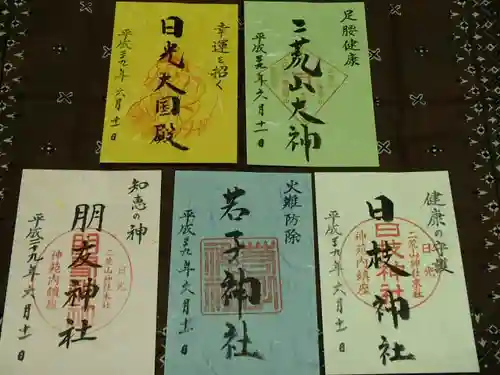 幸運を招く
日光大国殿
平成二九年六月十一日
足腰健康
二荒山大神
平成二九年六月十一日
知恵の神
朋友神社
日光
二荒山神社末社
神苑内鎮座
平成二九年六月十一日
火難防除
若子神社
平成二九年六月十一日
健康の守護
日枝神社
日光
二荒山神社末社
神苑内鎮座
平成二九年六月十一日